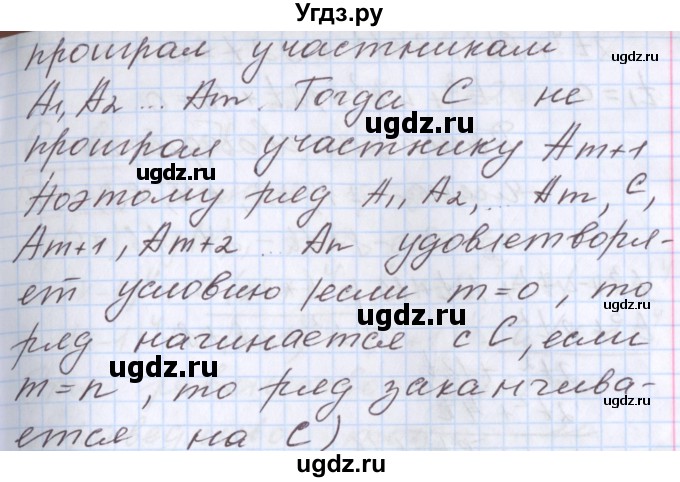 Угдз.ру
проиграл участникам
A1, A2 ... Am. Тогда C не
проиграл участнику Am+1
Поэтому ряд A1, A2, ... Am, C,
Am+1, Am+2 ... An удовлетворя-
ет условию (если m=0, то
ряд начинается с C, если
m=n, то ряд заканчива-
ется на C)
ugdz.ru
ugdz.ru
ugdz.ru
ugdz.ru
ugdz.ru
ugdz.ru
ugdz.ru
ugdz.ru
ugdz.ru